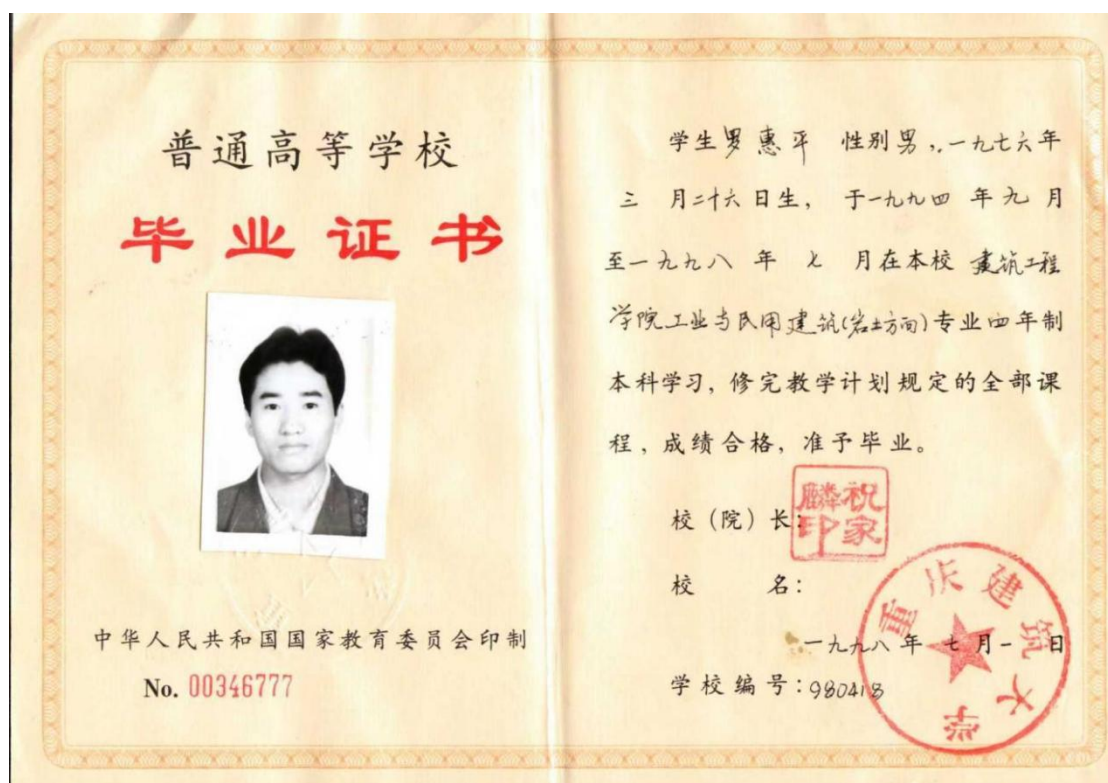 普通高等学校
毕业证书
中华人民共和国国家教育委员会印制
No. 00346777
学生罗惠平 性别男,一九七六年
三 月二十六日生, 于一九九四 年九 月
至一九九八 年 七 月在本校 建筑工程
学院工业与民用建筑(岩土方向)专业四年制
本科学习, 修完教学计划规定的全部课
程, 成绩合格, 准予毕业。
校(院)长:
祝家麟印
校 名:
重庆建筑大学
一九九八 年 七 月一 日
学校编号:980418